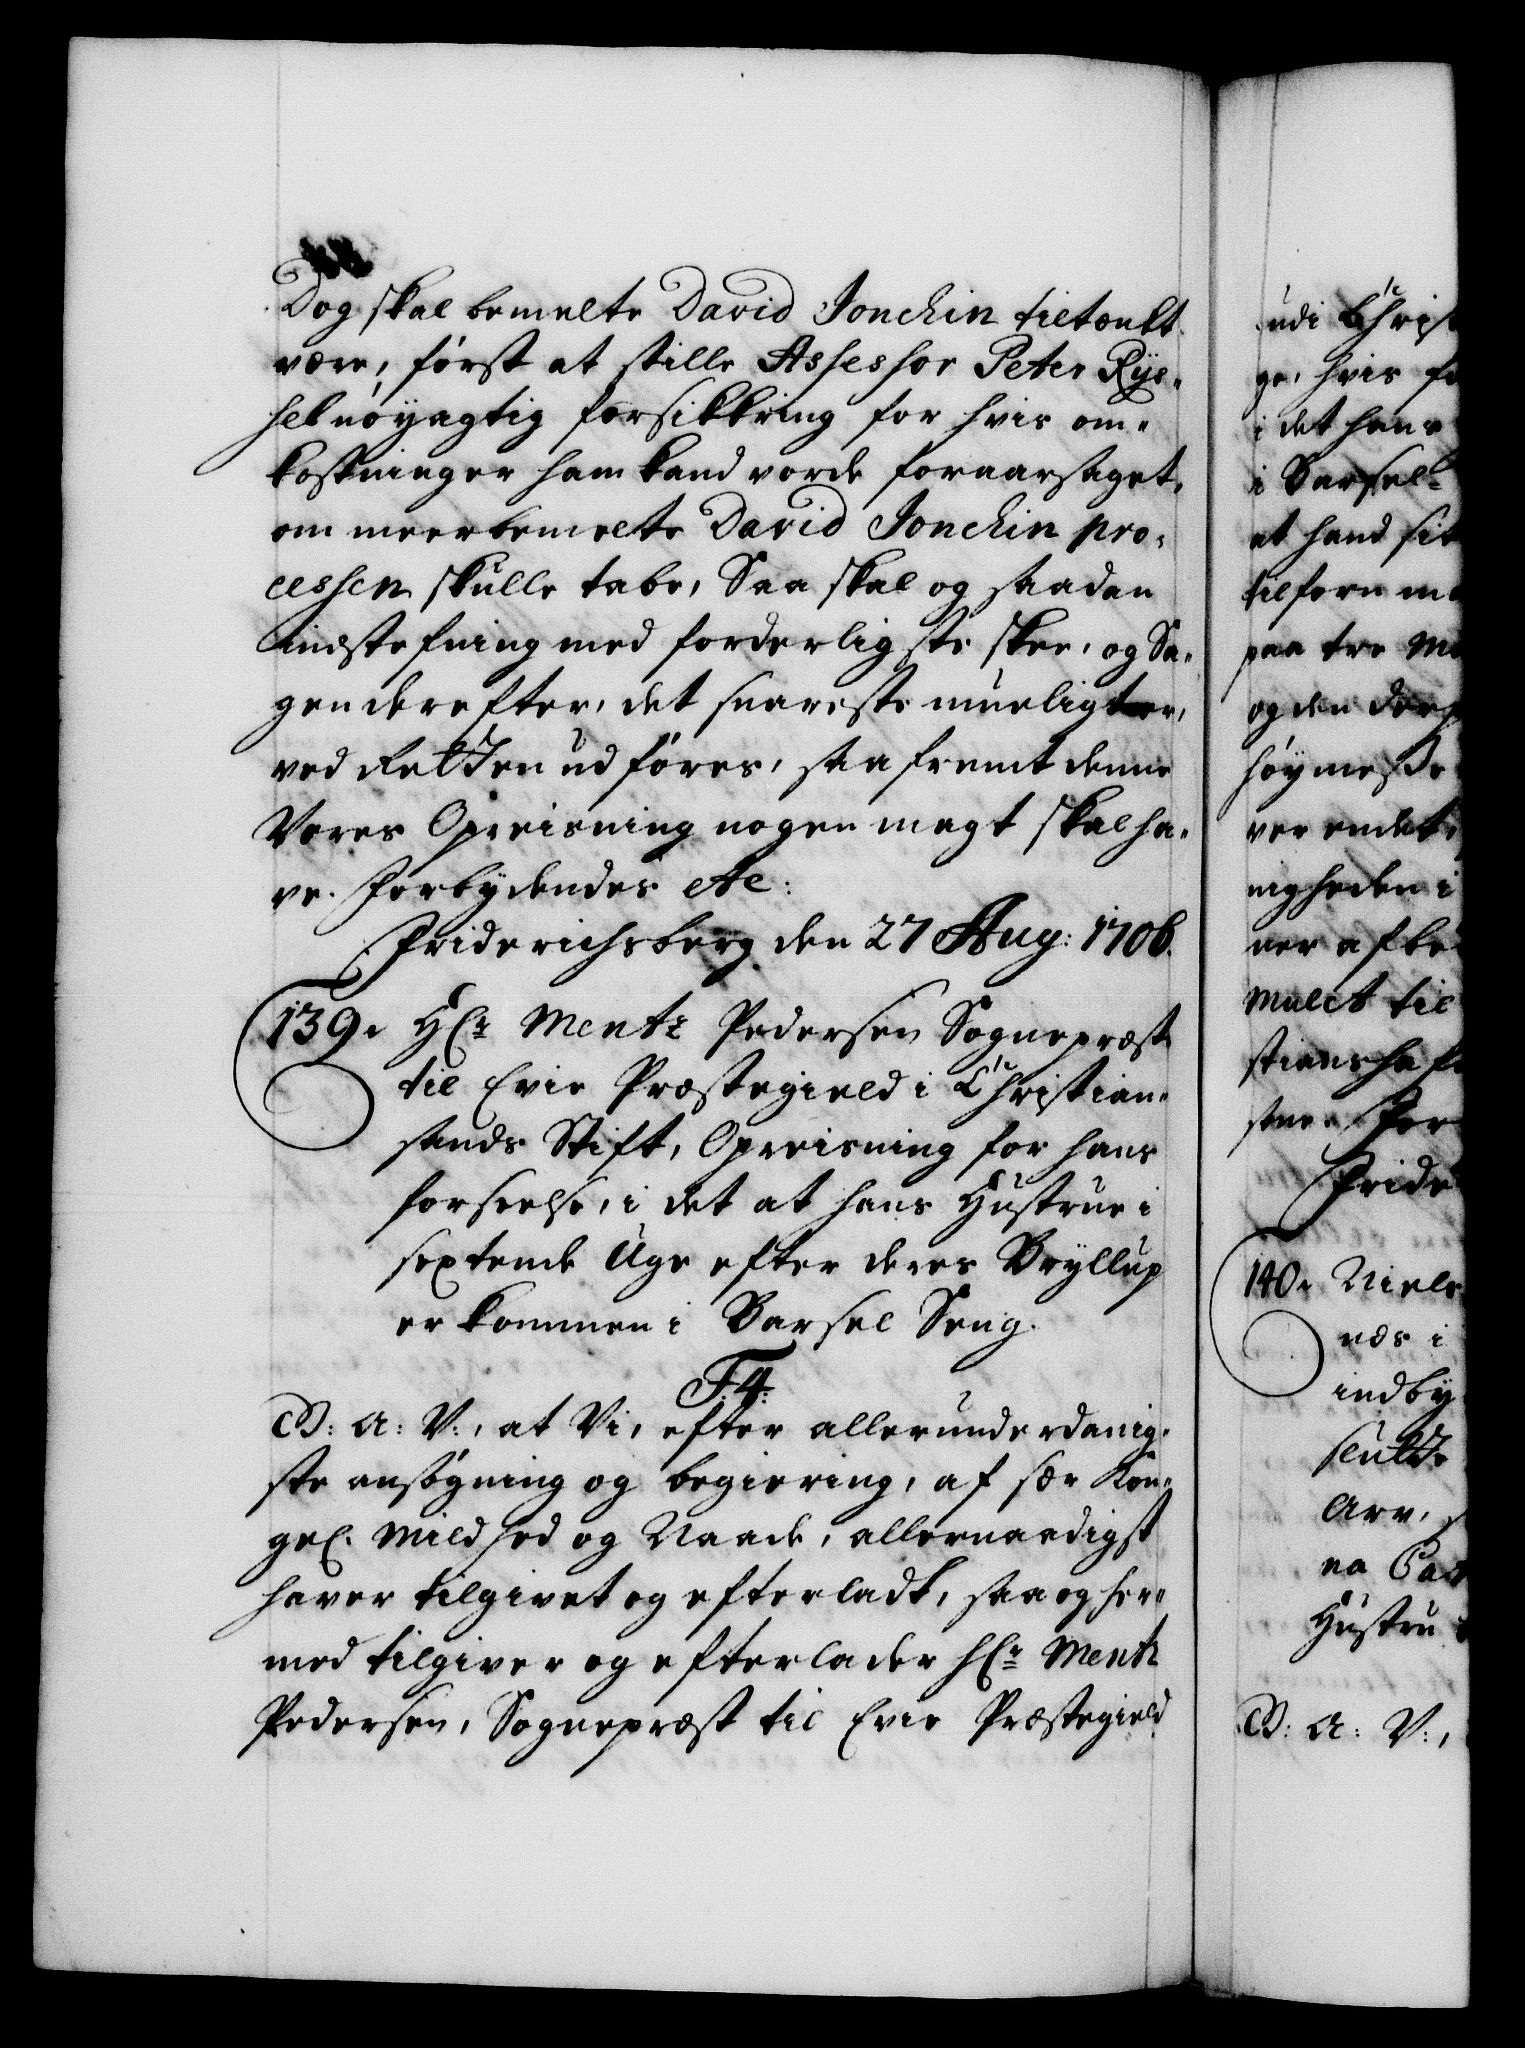 Dog skal bemelte David Jonchin tiltænkt
være, først at stille Assessor Peter Rÿs-
sel nøyagtig forsikkring for hvis om-
kostninger ham kand vorde foraarsaget,
om meerbemelte David Jonchin pro-
cessen skulle tabe, Saa skal og saadan
indstefning med forderligste skee, og Sa-
gen derefter, det snareste mueligt er,
ved Retten udføres, saafremt denne
Vores Opreisning nogen magt skal ha-
ve. Forbydendes etc:
Friderichsberg den 27 Aug: 1706.
139. Hr Mentz Pedersen Sognepræst
til Evie Præstegield i Christian-
sands Stift, Opreisning for hans
forseelse, i det at hans Hustrue i
sextende Uge efter deres Bryllup
er kommen i Barsel Seng.
F. 4.
G: A: V:, at Vi, efter allerunderdanig-
ste ansøgning og begiering, af sær Kon-
gel. Mildhed og Naade, allernaadigst
haver tilgivet og efterladt, saa og her-
med tilgiver og efterlader Hr Mentz
Pedersen, Sognepræst til Evie Præstegield
udi Christ
ge, hvis fo
i det hans
i Barsel-
at hand sit
tilforn m
paa tre M
og den
høymesse
ver endet,
nigheden i
ner afbe
Mulct til
stianshaf
stue. For
Fride
140. Niels
næs i
indby
skulde
Arv, s
na Ca
Hustru
G: A: V:,